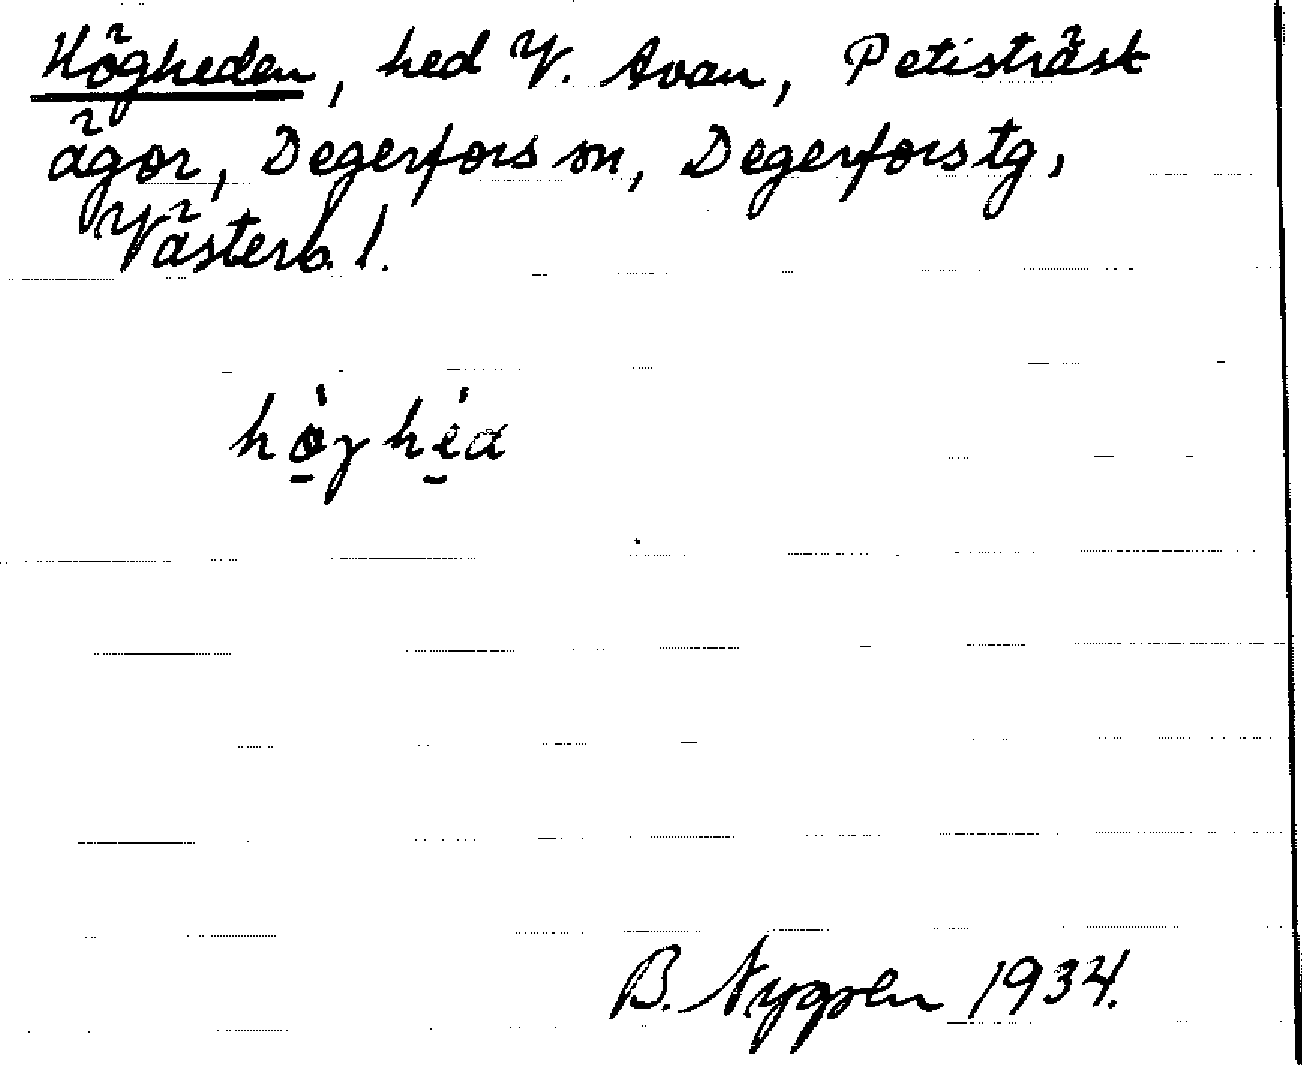 Högheden, hed V. Avan, Petisträsk
ägor, Degerfors sn, Degerfors tg,
Västerb. l.
hö̀γhéa
B. Nygren 1934.